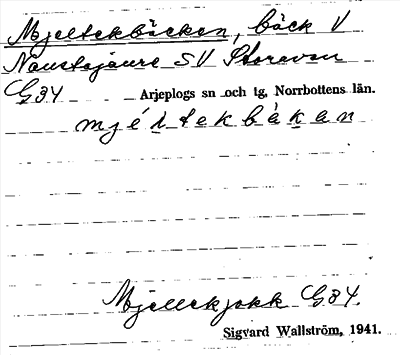 Mjeltekbäcken, bäck V
Naustajaure SV Storavan
G34 Arjeplogs sn och tg, Norrbottens län.
mjéltekbäkan
Mjellekjokk G34.
Sigvard Wallström, 1941.